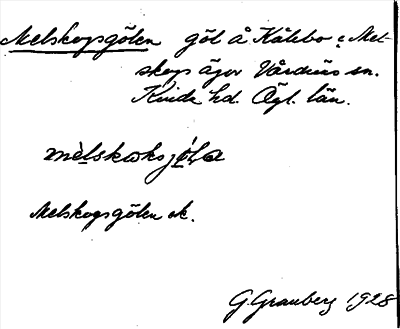 Melskogsgölen göl å Kålebo i Mel-
skogs ägor Vårdnäs sn.
Kinda hd. Ögl. län.
mèlskωksjọ̈lα
Melskogsgölen ek.
G. Granberg 1928